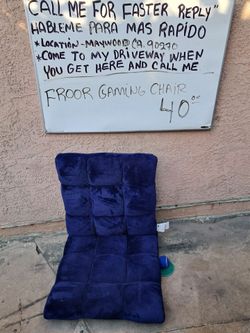 CALL ME FOR FASTER REPLY"
HABLEME PARA MAS RAPIDO
*LOCATION-MAYWOOD CA. 90270
*COME TO MY DRIVEWAY WHEN
YOU GET HERE AND CALL ME
FROOR GAMING CHAIR
40°°